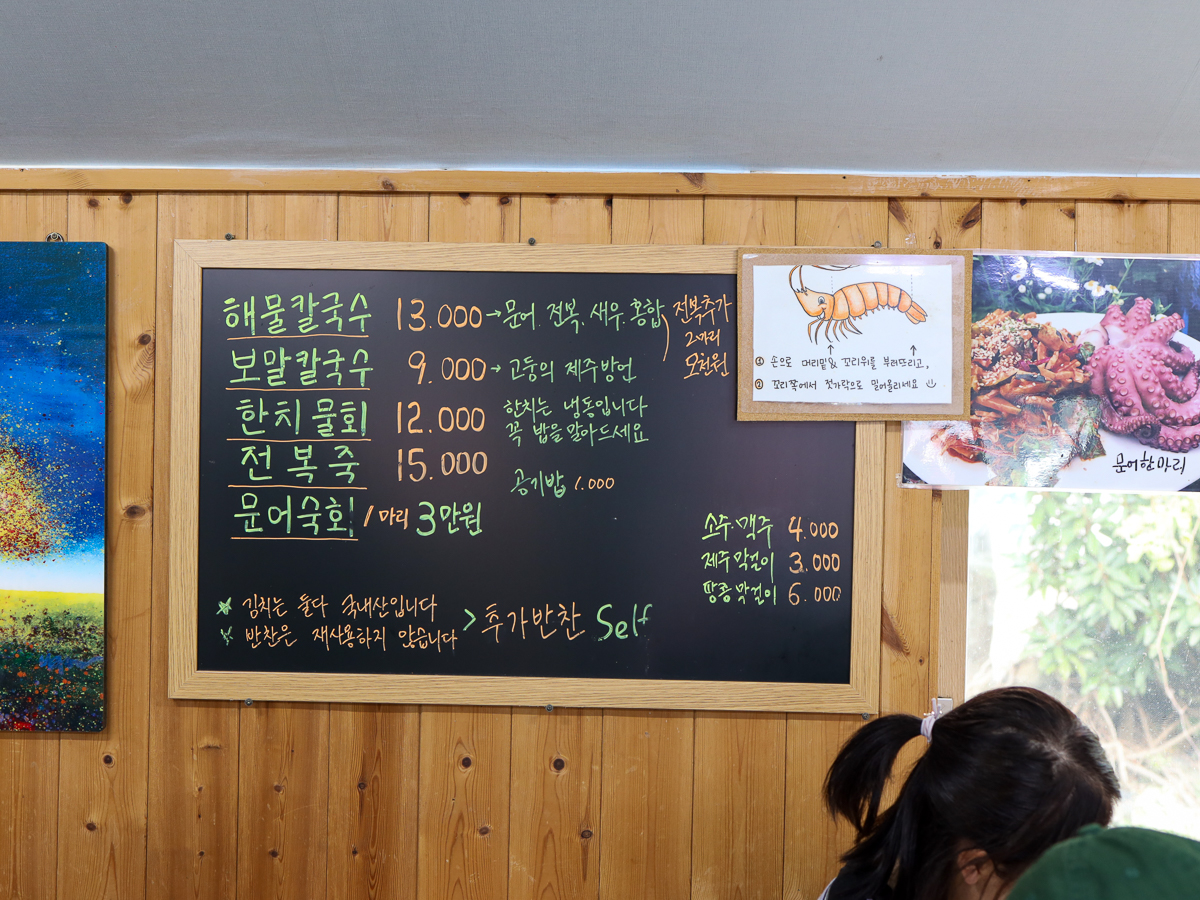 해물칼국수 13.000 → 문어. 전복. 새우. 홍합
전복추가
2마리
오천원
보말칼국수 9.000 → 고둥의 제주방언
한치물회 12.000
한치는 냉동입니다
꼭 밥을 말아드세요
전복죽 15.000
공기밥 1.000
문어숙회 1마리 3만원
소주.맥주 4.000
제주막걸이 3.000
땅콩막걸이 6.000
김치는 둘다 국내산입니다
반찬은 재사용하지 않습니다
> 추가반찬 Self
① 손으로 머리밑& 꼬리위를 부러뜨리고,
② 꼬리쪽에서 젓가락으로 밀어올리세요
문어한마리